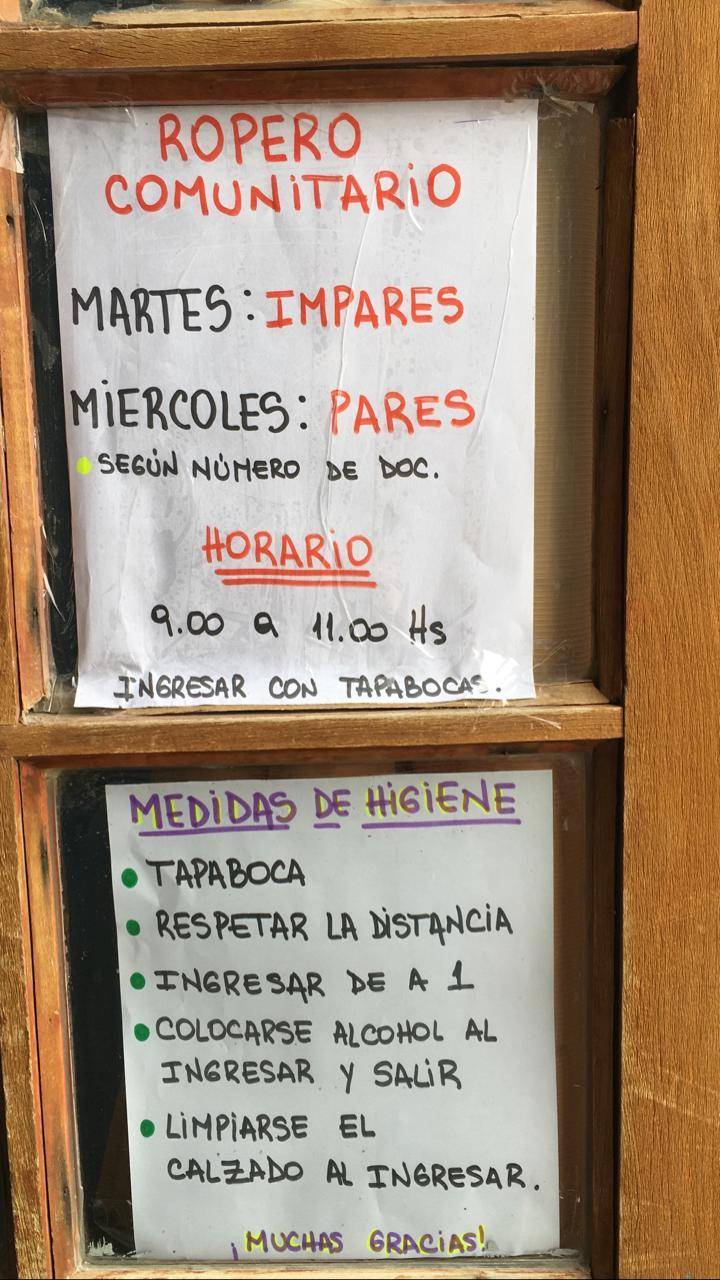 ROPERO
COMUNITARIO
MARTES: IMPARES
MIERCOLES: PARES
SEGÚN NÚMERO DE DOC.
HORARIO
9.00 a 11.00 Hs
INGRESAR CON TAPABOCAS.
MEDIDAS DE HIGIENE
TAPABOCA
RESPETAR LA DISTANCIA
INGRESAR DE A 1
COLOCARSE ALCOHOL AL
INGRESAR Y SALIR
LIMPIARSE EL
CALZADO AL INGRESAR.
¡MUCHAS GRACIAS!